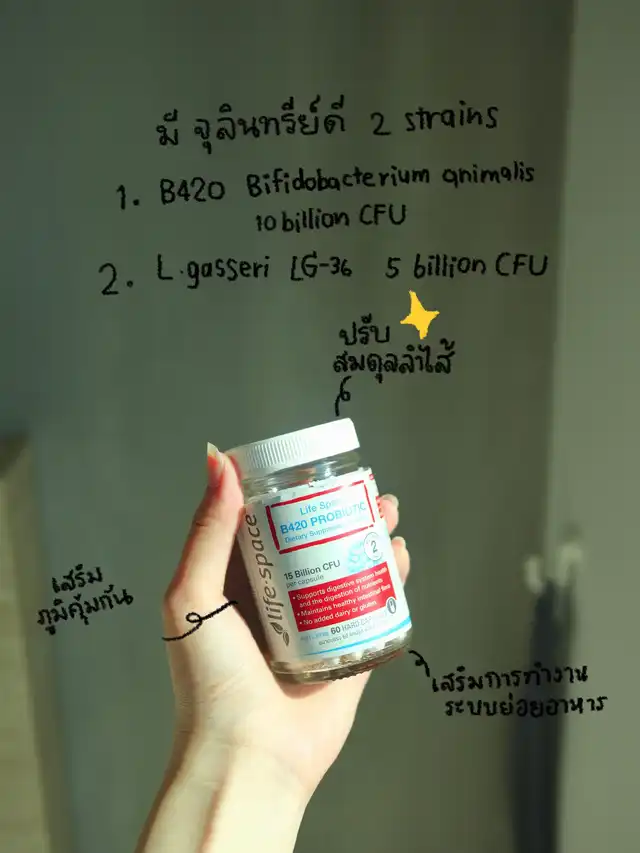 มี จุลินทรีย์ดี 2 strains
1. B420 Bifidobacterium animalis
10 billion CFU
2. L.gasseri LG-36 5 billion CFU
ปรับ
สมดุลลำไส้
เสริม
ภูมิคุ้มกัน
life space
Life Space
B420 PROBIOTIC
Dietary Supplement
2
15 Billion CFU
per capsule
• Supports digestive system health
and the digestion of nutrients
• Maintains healthy intestinal flora
• No added dairy or gluten
60 HARD
เสริมการทำงาน
ระบบย่อยอาหาร